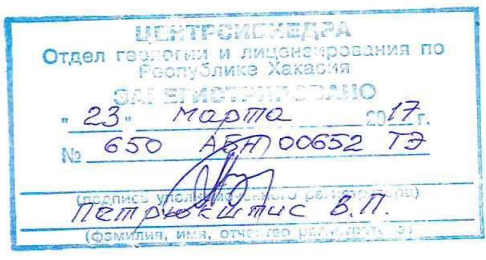 ЦЕНТРСИБНЕДРА
Отдел геологии и лицензирования по
Республике Хакасия
ЗАРЕГИСТРИРОВАНО
"23" марта 2017г.
№ 650 АБН 00652 ТЭ
(подпись уполномоченного регистратора)
Петрюкштис В.П.
(фамилия, имя, отчество регистратора)